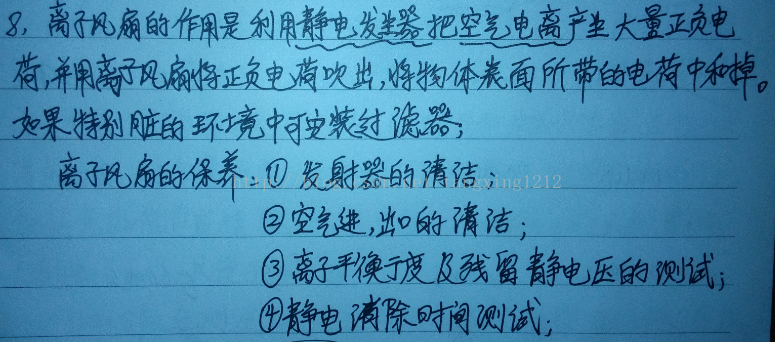 8、离子风扇的作用是利用静电发生器把空气电离产生大量正负电
荷,并用离子风扇将正负电荷吹出,将物体表面所带的电荷中和掉。
如果特别脏的环境中可安装过滤器;
离子风扇的保养 ① 发射器的清洁;
② 空气进,出口的清洁;
③ 离子平衡度及残留静电压的测试;
④ 静电消除时间测试;